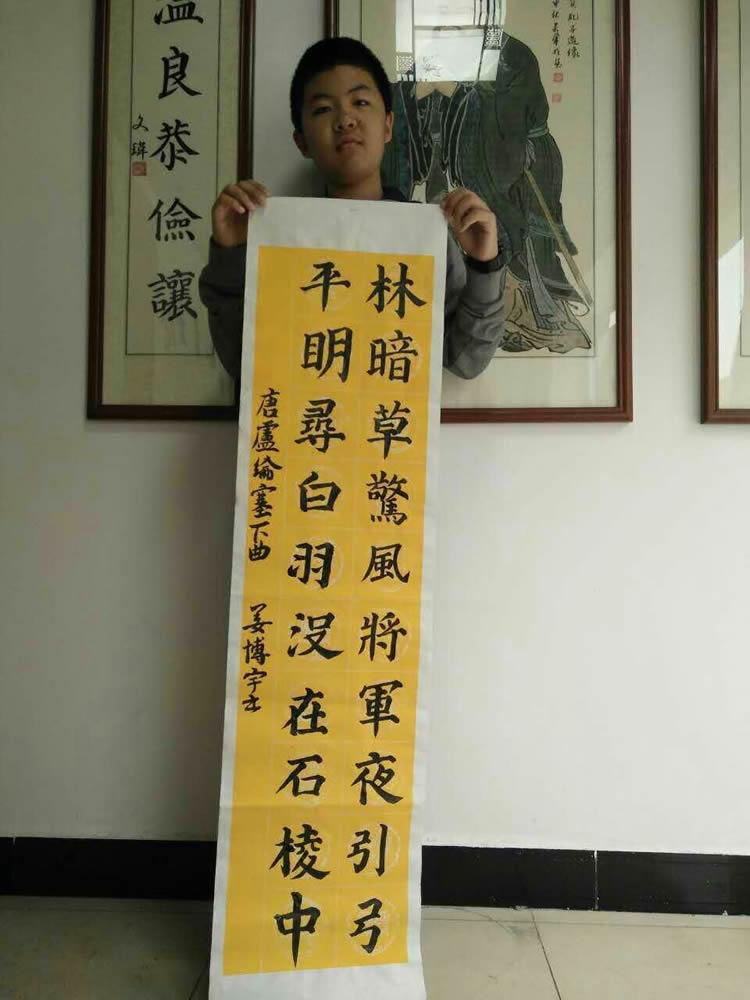 林暗草驚風將軍夜引弓
平明尋白羽没在石棱中
唐盧綸塞下曲 姜博宇书
温良恭儉讓